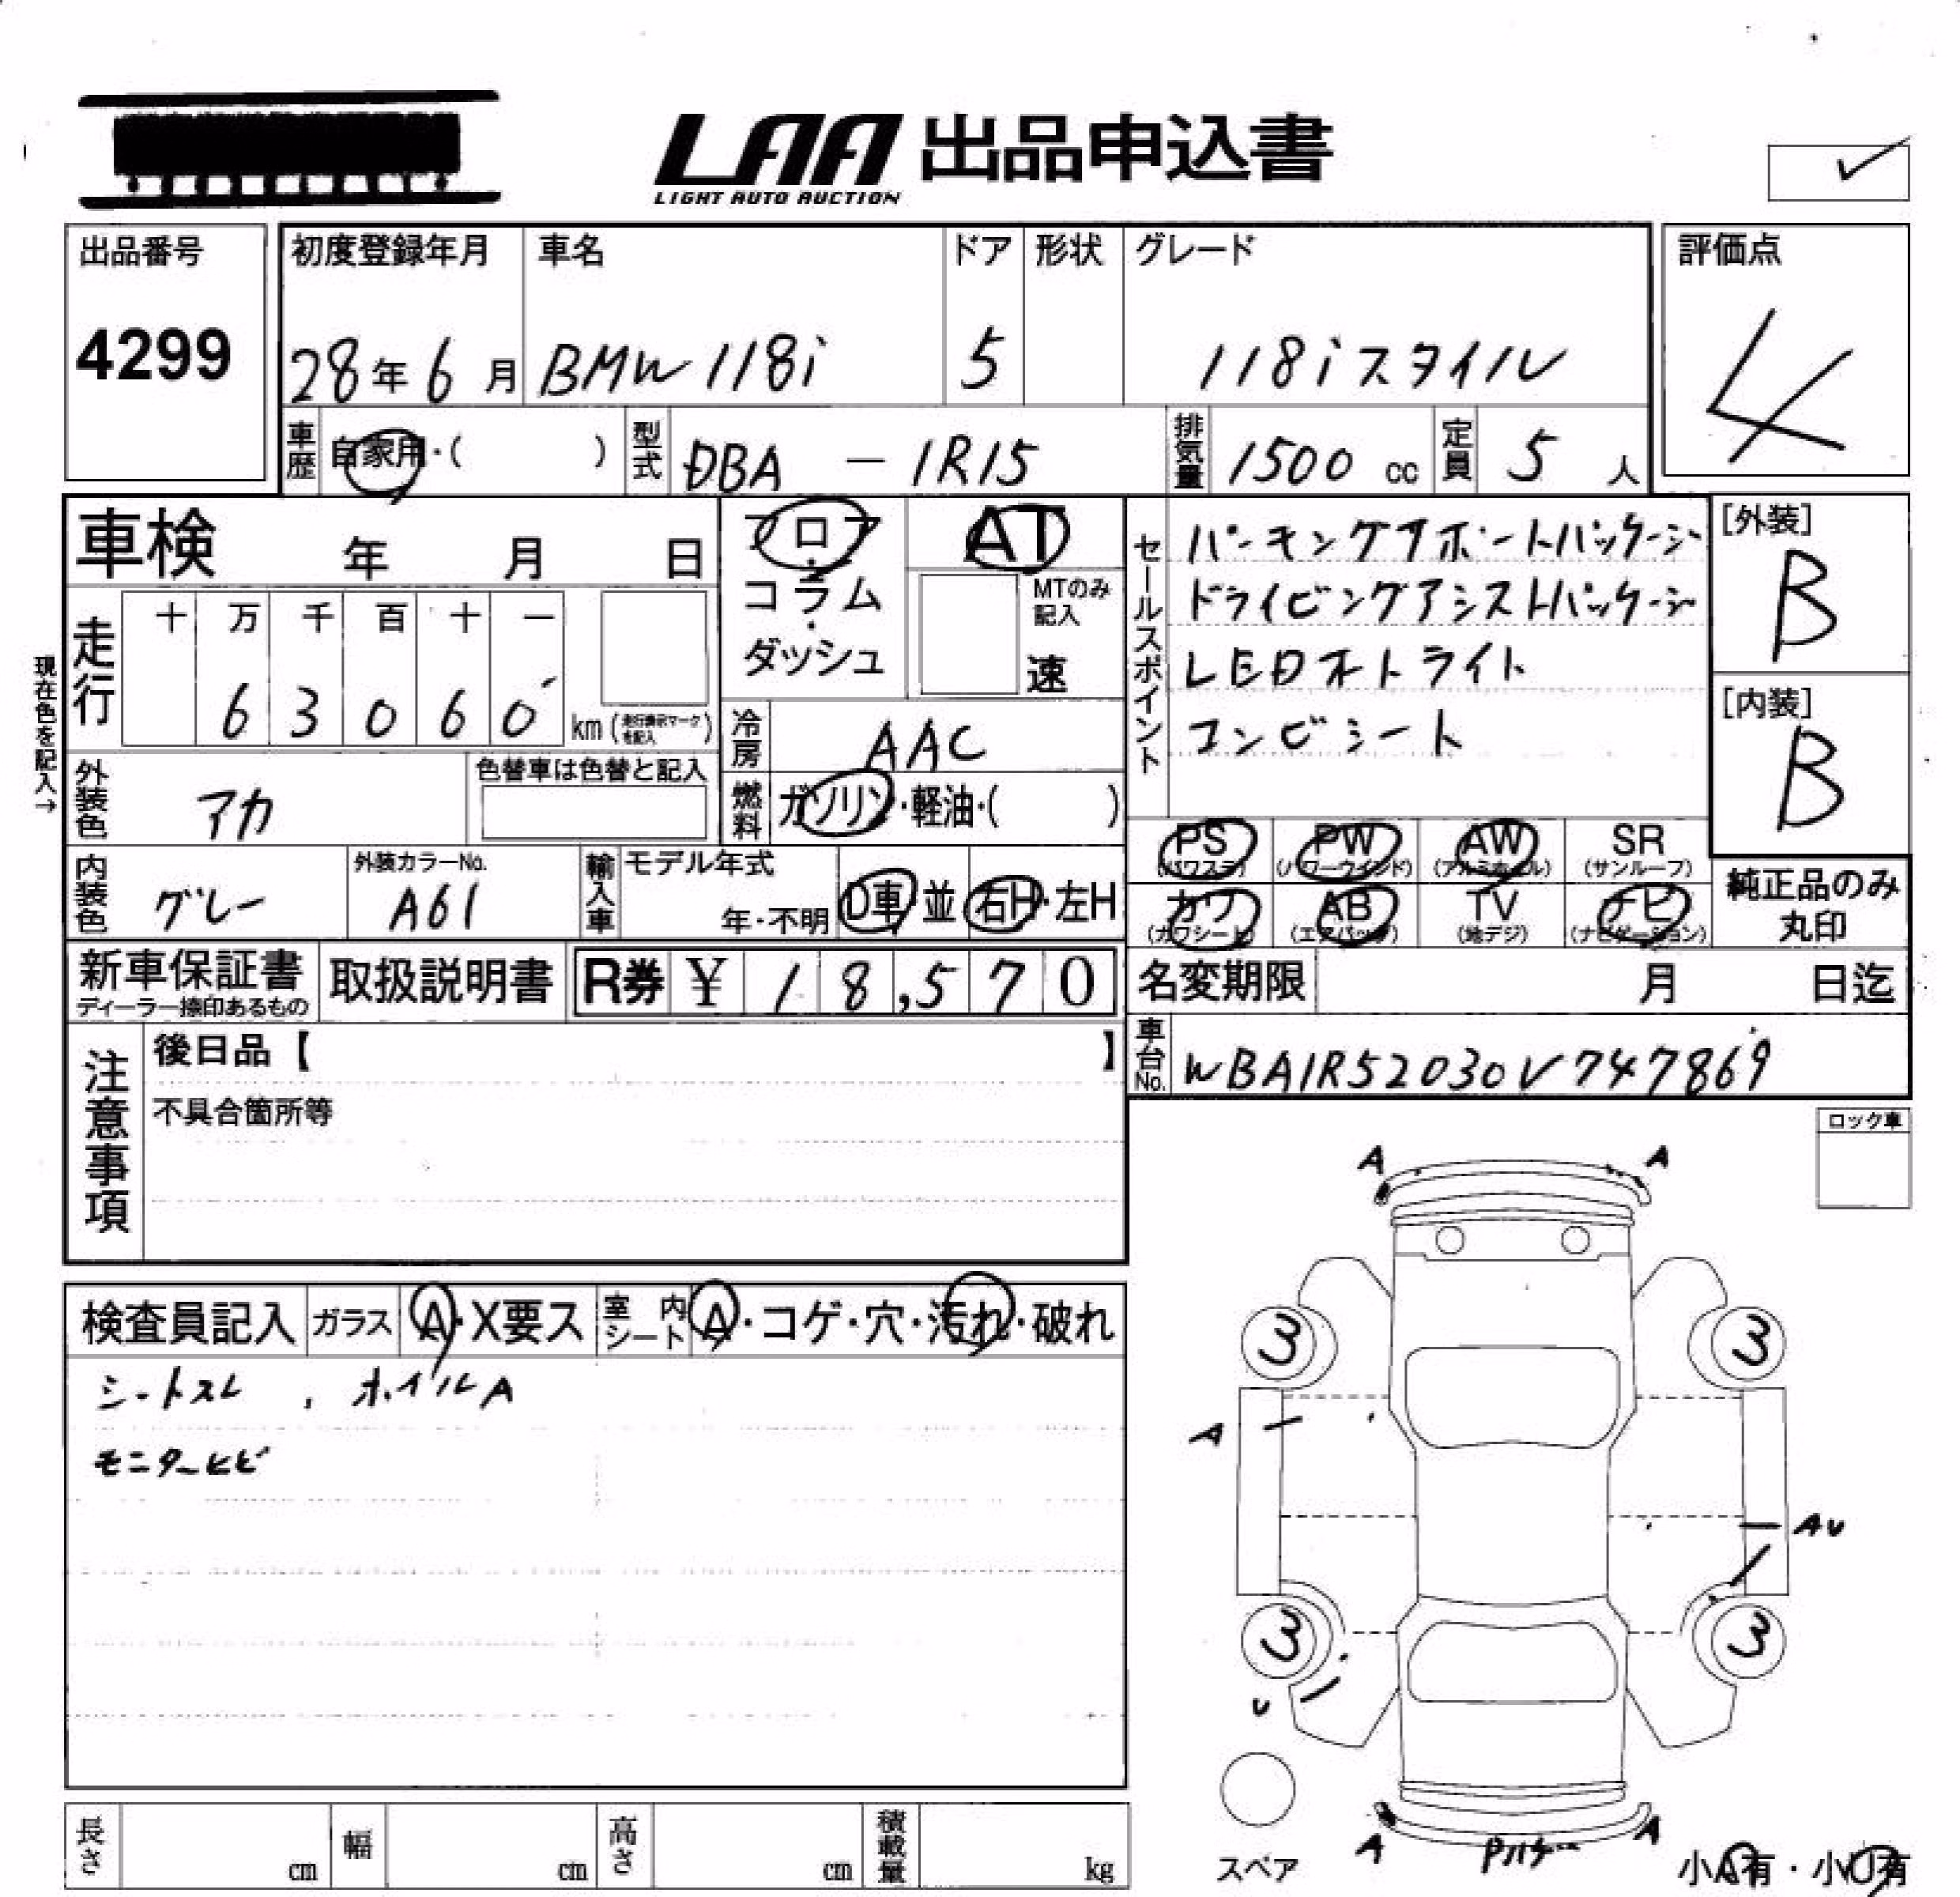 LAA 出品申込書
LIGHT AUTO AUCTION
出品番号
4299
初度登録年月 車名 ドア 形状 グレード
28年6月 BMW 118i 5 118iスタイル
評価点
4
車歴 自家用・( ) 型式 DBA - 1R15 排気量 1500 cc 定員 5 人
車検 年 月 日
フロア
コラム
ダッシュ
AT
MTのみ記入
速
セールスポイント
パーキングサポートパッケージ
ドライビングアシストパッケージ
LEDオトライト
コンビシート
[外装]
B
[内装]
B
現在色を記入→
走行 十 万 千 百 十 一
6 3 0 6 0 km (走行表示マークを記入)
冷房 AAC
外装色 アカ 色替車は色替と記入
燃料 ガソリン・軽油・( )
PS (パワステ) PW (パワーウインド) AW (アルミホイル) SR (サンルーフ)
カワ (カワシート) AB (エアバッグ) TV (地デジ) ナビ (ナビゲーション)
純正品のみ丸印
内装色 グレー 外装カラーNo. A61 輸入車 モデル年式 年・不明 D車・並 右H・左H
新車保証書 ディーラー捺印あるもの 取扱説明書 R券 ¥ 18,570
名変期限 月 日迄
車台No. WBA1R52030V747869
注意事項
後日品【 】
不具合箇所等
ロック車
検査員記入 ガラス A・X要ス 室内シート A・コゲ・穴・汚れ・破れ
シートスレ . ホイルA
モニターヒビ
A A
3 3
A
AU
3 3
U
A A
スペア
小A有・小U有
長さ cm 幅 cm 高さ cm 積載量 kg